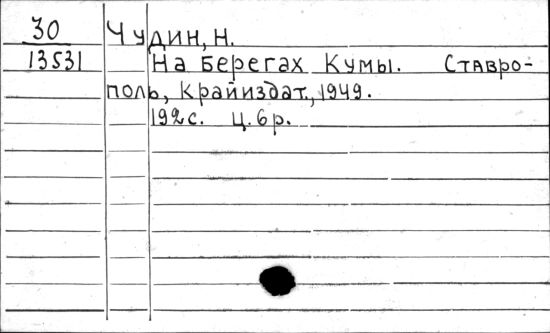 30 Чудин, Н.
13531 На берегах Кумы. Ставро-
поль, Крайиздат, 1949.
192с. ц. 6р.